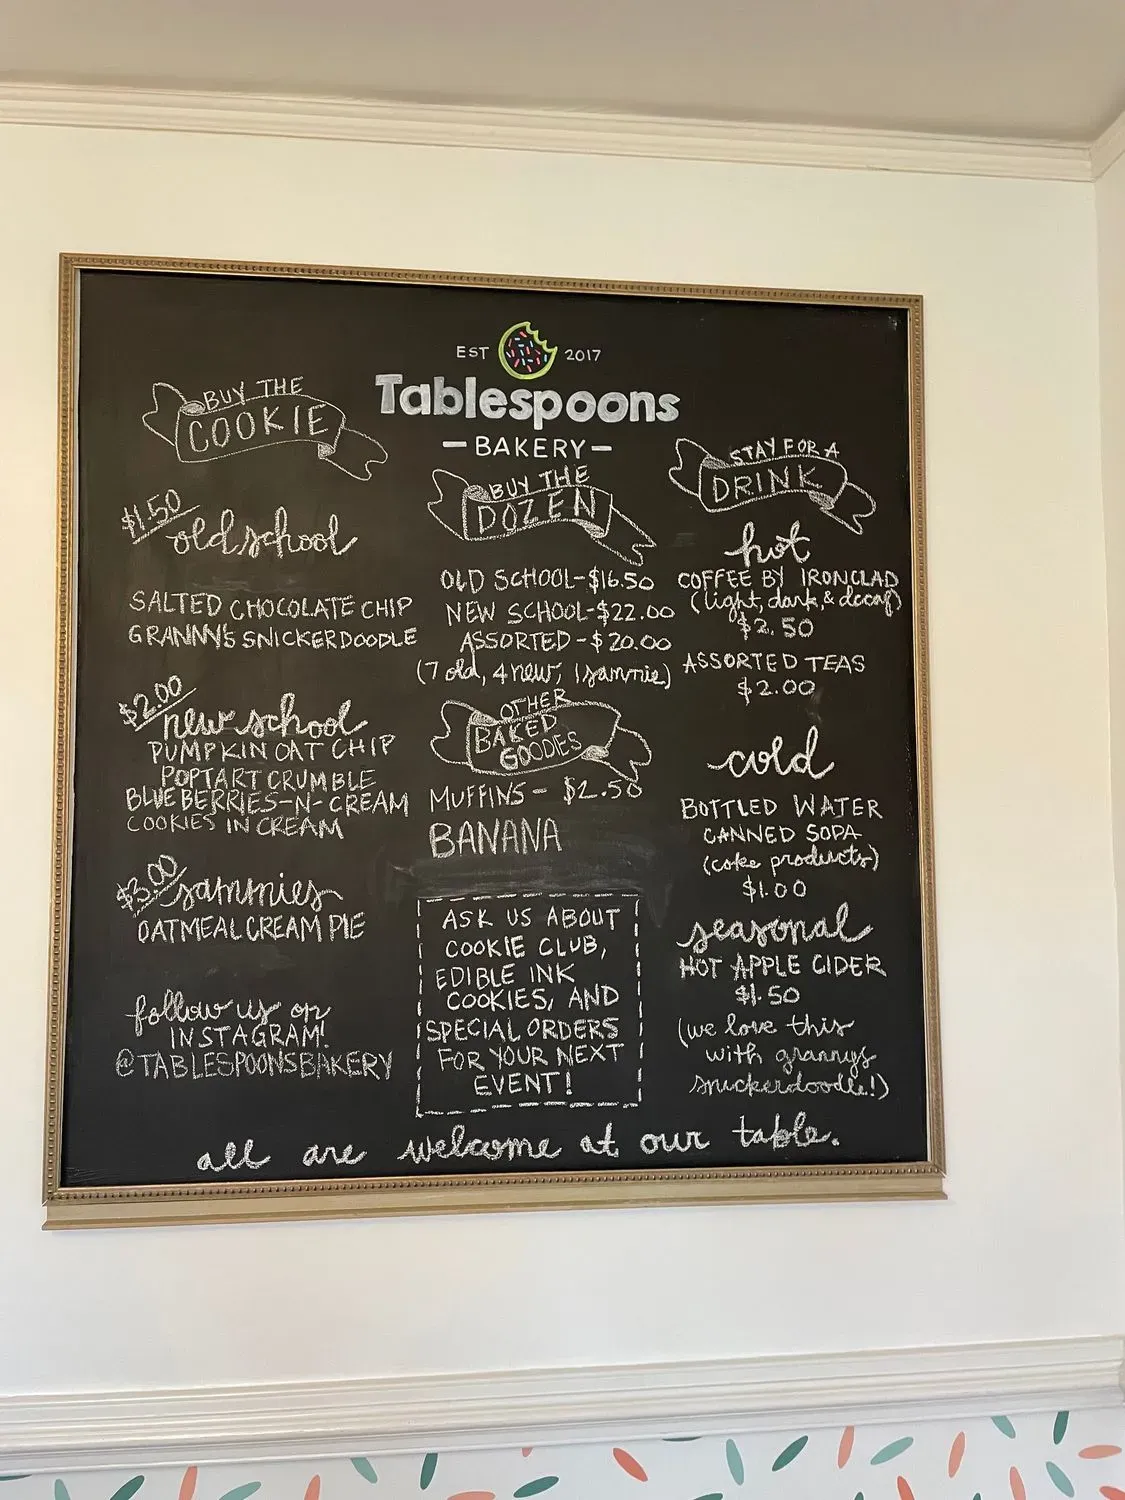 EST 2017
Tablespoons
-BAKERY-
BUY THE
COOKIE
$1.50
old school
SALTED CHOCOLATE CHIP
GRANNY'S SNICKERDOODLE
$2.00
new school
PUMPKIN OAT CHIP
POPTART CRUMBLE
BLUEBERRIES-N-CREAM
COOKIES IN CREAM
$3.00
sammies
OATMEAL CREAM PIE
follow us on
INSTAGRAM!
@TABLESPOONSBAKERY
BUY THE
DOZEN
OLD SCHOOL-$16.50
NEW SCHOOL-$22.00
ASSORTED-$20.00
(7 old, 4 new, 1 sammie)
OTHER
BAKED
GOODIES
MUFFINS - $2.50
BANANA
ASK US ABOUT
COOKIE CLUB,
EDIBLE INK
COOKIES, AND
SPECIAL ORDERS
FOR YOUR NEXT
EVENT!
STAY FOR A
DRINK
hot
COFFEE BY IRONCLAD
(light, dark, & decaf)
$2.50
ASSORTED TEAS
$2.00
cold
BOTTLED WATER
CANNED SODA
(coke products)
$1.00
seasonal
HOT APPLE CIDER
$1.50
(we love this
with granny's
snickerdoodle!)
all are welcome at our table.